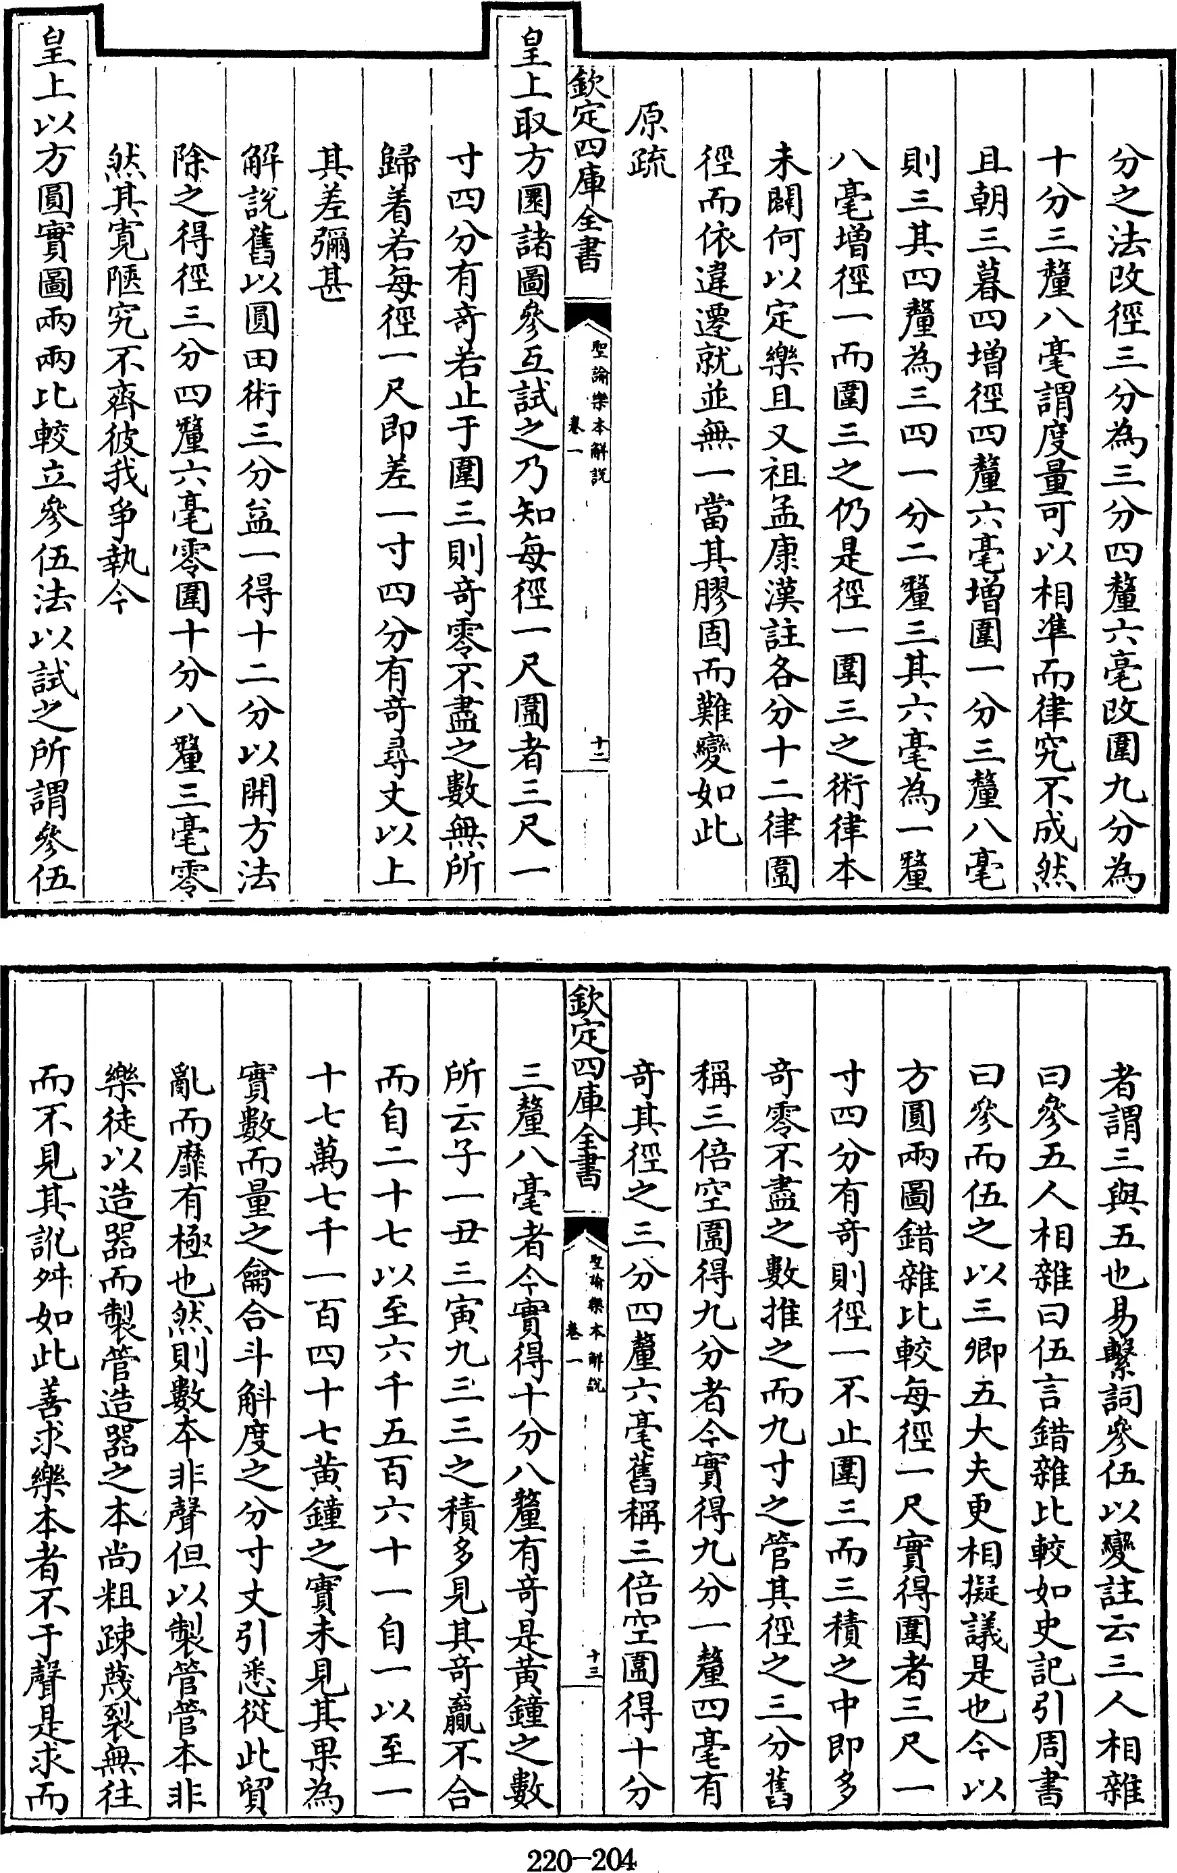 分之法改徑三分為三分四釐六毫改圍九分為
十分三釐八毫謂度量可以相凖而律究不成然
且朝三暮四增徑四釐六毫增圍一分三釐八毫
則三其四釐為三四一分二釐三其六毫為一釐
八毫增徑一而圍三之仍是徑一圍三之術律本
未闢何以定樂且又祖孟康漢註各分十二律圍
徑而依違遷就並無一當其膠固而難變如此
原疏
欽定四庫全書
聖諭樂本解說
卷一
十二
皇上取方圜諸圖參互試之乃知每徑一尺圍者三尺一
寸四分有奇若止于圍三則奇零不盡之數無所
歸着若每徑一尺即差一寸四分有奇尋丈以上
其差彌甚
解說舊以圓田術三分益一得十二分以開方法
除之得徑三分四釐六毫零圍十分八釐三毫零
然其寛陿究不齊彼我爭執今
皇上以方圓實圖兩兩比較立參伍法以試之所謂參伍
者謂三與五也易繫詞參伍以變註云三人相雜
曰參五人相雜曰伍言錯雜比較如史記引周書
曰參而伍之以三卿五大夫更相擬議是也今以
方圓兩圖錯雜比較每徑一尺實得圍者三尺一
寸四分有奇則徑一不止圍三而三積之中即多
奇零不盡之數推之而九寸之管其徑之三分舊
稱三倍空圍得九分者今實得九分一釐四毫有
奇其徑之三分四釐六毫舊稱三倍空圍得十分
欽定四庫全書
聖諭樂本解說
卷一
十三
三釐八毫者今實得十分八釐有奇是黃鐘之數
所云子一丑三寅九三三之積多見其奇贏不合
而自二十七以至六千五百六十一自一以至一
十七萬七千一百四十七黃鐘之實未見其果為
實數而量之龠合斗斛度之分寸丈引悉從此貿
亂而靡有極也然則數本非聲但以製管管本非
樂徒以造器而製管造器之本尚粗疎蔑裂無往
而不見其訛舛如此善求樂本者不于聲是求而
220-204